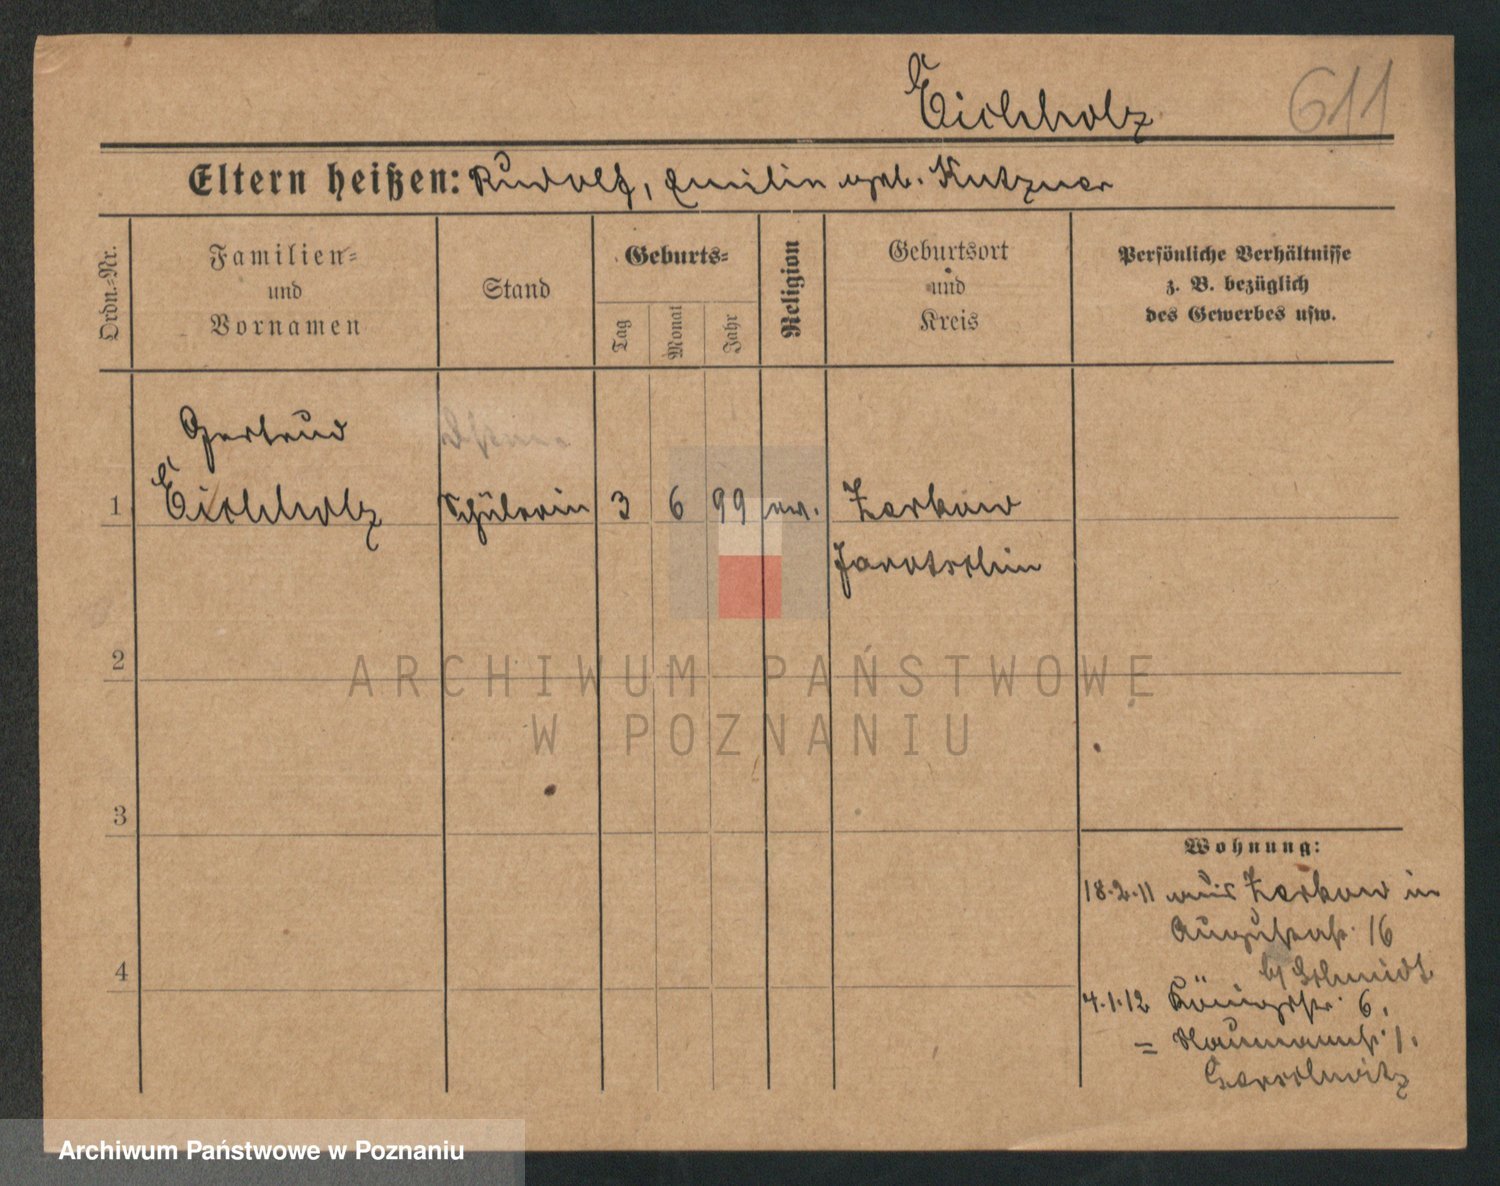 Eichholz
611
Eltern heißen: Rudolf, Emilie geb. Kutzner
Ordn.-Nr.
Familien-
und
Vornamen
Stand
Geburts-
Tag
Monat
Jahr
Religion
Geburtsort
und
Kreis
Persönliche Verhältnisse
z. B. bezüglich
des Gewerbes usw.
Gertrud
1 Eichholz Schülerin 3 6 99 ev. Zerkow
Jarotschin
2
ARCHIWUM PAŃSTWOWE
W POZNANIU
3
Wohnung:
18.2.11 aus Zerkow in
Augustastr. 16
b/ Schmidt
4
4.1.12 Königstr. 6.
= Naumannstr. 1.
Archiwum Państwowe w Poznaniu